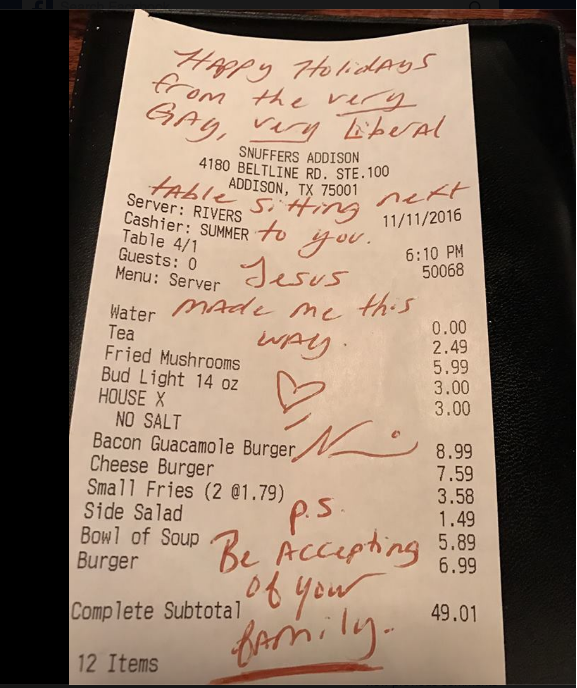 Happy Holidays
from the very
Gay, very Liberal
SNUFFERS ADDISON
4180 BELTLINE RD. STE.100
ADDISON, TX 75001
table sitting next
Server: RIVERS 11/11/2016
Cashier: SUMMER to you.
Table 4/1 6:10 PM
Guests: 0 50068
Menu: Server Jesus
made me this
Water 0.00
way.
Tea 2.49
Fried Mushrooms 5.99
Bud Light 14 oz 3.00
HOUSE X 3.00
NO SALT
Bacon Guacamole Burger 8.99
Cheese Burger 7.59
Small Fries (2 @1.79) 3.58
p.s.
Side Salad 1.49
Bowl of Soup 5.89
Be Accepting
Burger 6.99
of your
Complete Subtotal 49.01
family.
12 Items